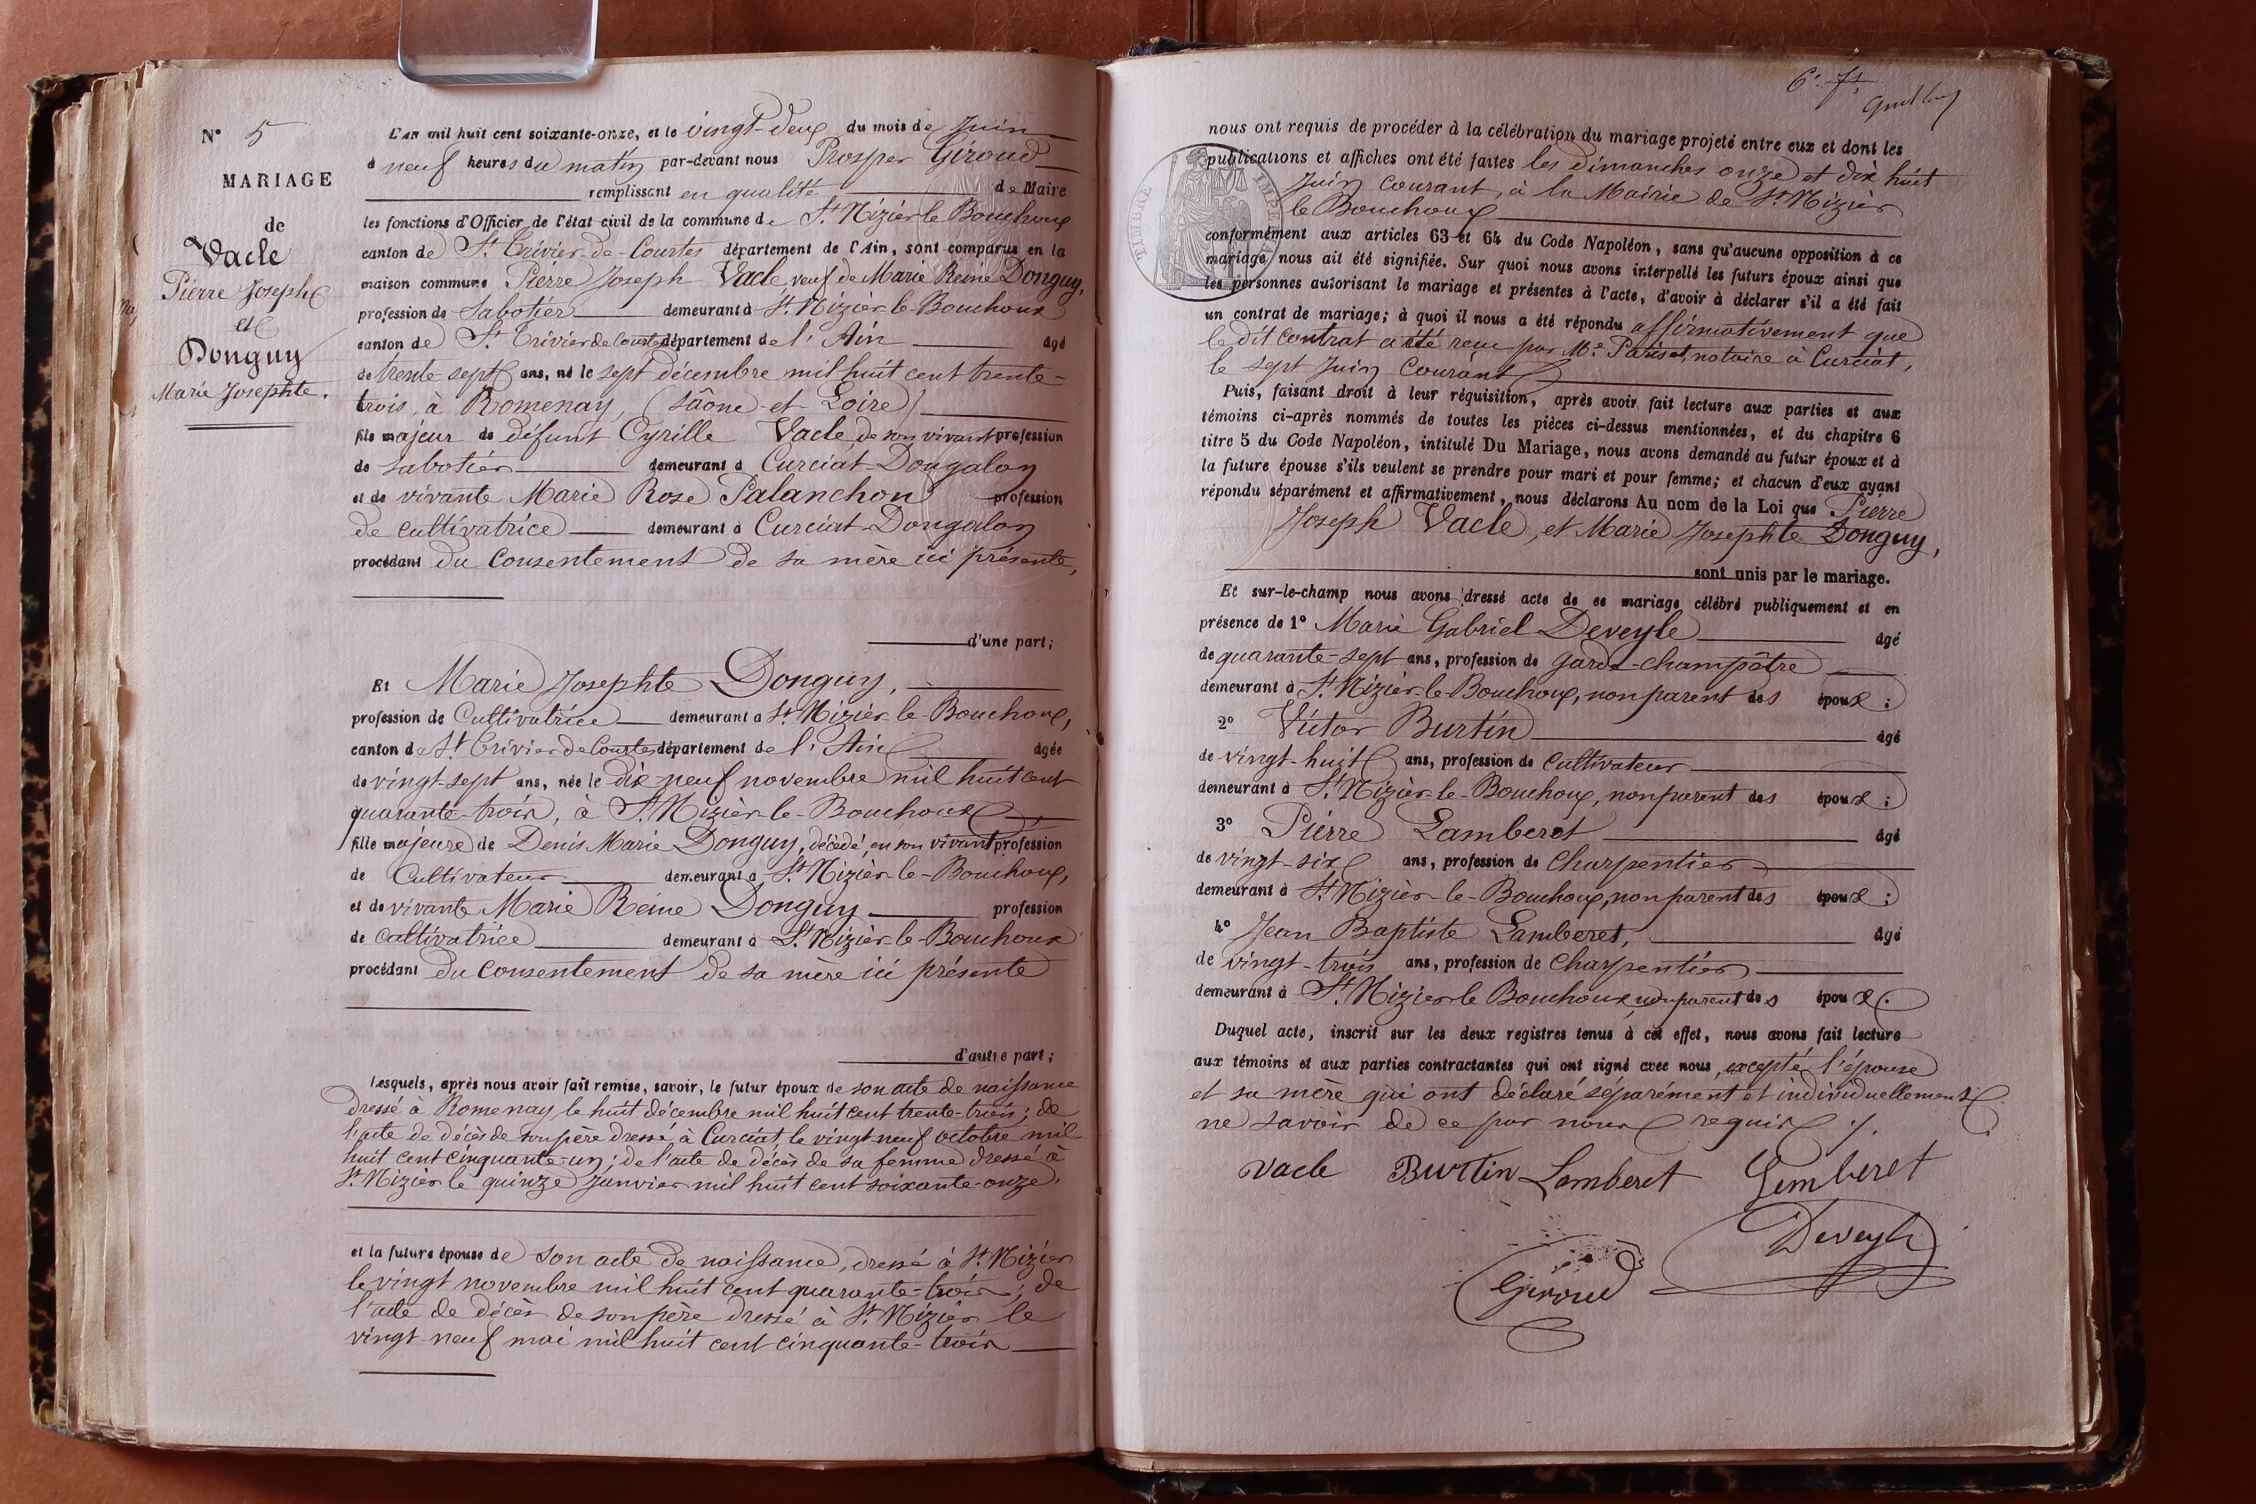 N° 5
MARIAGE
de
Vacle
Pierre Joseph
et
Donguy
Marie Josephte.
L'an mil huit cent soixante-onze, et le vingt-deux du mois de Juin
à neuf heures du matin par-devant nous Prosper Giroud
remplissant en qualité de Maire
les fonctions d'Officier de l'état civil de la commune de St Nizier le Bouchoux
canton de St Trivier-de-Courtes département de l'Ain, sont comparus en la
maison commune Pierre Joseph Vacle, veuf de Marie Reine Donguy,
profession de Sabotier demeurant à St Nizier-le-Bouchoux
canton de St Trivier de Courtes département de l'Ain âgé
de trente-sept ans, né le sept décembre mil huit cent trente-
trois, à Romenay, (Saône-et-Loire)
fils majeur de défunt Cyrille Vacle, de son vivant profession
de sabotier demeurant à Curciat-Dongalon
et de vivante Marie Rose Palanchon profession
de cultivatrice demeurant à Curciat-Dongalon
procédant du consentement de sa mère ici présente,
d'une part;
Et Marie Josephte Donguy,
profession de Cultivatrice demeurant à St Nizier-le-Bouchoux,
canton de St Trivier de Courtes département de l'Ain âgée
de vingt-sept ans, née le dix neuf novembre mil huit cent
quarante-trois, à St Nizier-le-Bouchoux
fille majeure de Denis Marie Donguy, décédé, en son vivant profession
de Cultivateur demeurant à St Nizier-le-Bouchoux,
et de vivante Marie Reine Donguy profession
de cultivatrice demeurant à St Nizier-le-Bouchoux
procédant du consentement de sa mère ici présente
d'autre part;
Lesquels, après nous avoir fait remise, savoir, le futur époux de son acte de naissance
dressé à Romenay le huit décembre mil huit cent trente-trois; de
l'acte de décès de son père dressé à Curciat, le vingt-neuf octobre mil
huit cent cinquante-un; de l'acte de décès de sa femme dressé à
St Nizier le quinze Janvier mil huit cent soixante-onze.
et la future épouse de son acte de naissance, dressé à St Nizier
le vingt novembre mil huit cent quarante-trois; de
l'acte de décès de son père dressé à St Nizier le
vingt-neuf mai mil huit cent cinquante-trois
6e
nous ont requis de procéder à la célébration du mariage projeté entre eux et dont les
publications et affiches ont été faites les dimanches onze et dix huit
Juin courant, à la Mairie de St Nizier
le Bouchoux
conformément aux articles 63 et 64 du Code Napoléon, sans qu'aucune opposition à ce
mariage nous ait été signifiée. Sur quoi nous avons interpellé les futurs époux ainsi que
les personnes autorisant le mariage et présentes à l'acte, d'avoir à déclarer s'il a été fait
un contrat de mariage; à quoi il nous a été répondu affirmativement que
le dit contrat a été reçu par Me Pariset, notaire à Curciat,
le sept Juin courant
Puis, faisant droit à leur réquisition, après avoir fait lecture aux parties et aux
témoins ci-après nommés de toutes les pièces ci-dessus mentionnées, et du chapitre 6
titre 5 du Code Napoléon, intitulé Du Mariage, nous avons demandé au futur époux et à
la future épouse s'ils veulent se prendre pour mari et pour femme; et chacun d'eux ayant
répondu séparément et affirmativement, nous déclarons Au nom de la Loi que Pierre
Joseph Vacle, et Marie Josephte Donguy,
sont unis par le mariage.
Et sur-le-champ nous avons dressé acte de ce mariage célébré publiquement et en
présence de 1° Marie Gabriel Deveyle âgé
de quarante-sept ans, profession de garde-champêtre
demeurant à St Nizier-le-Bouchoux, non parent des époux;
2° Victor Burtin âgé
de vingt-huit ans, profession de cultivateur
demeurant à St Nizier-le-Bouchoux, non parent des époux;
3° Pierre Lamberet âgé
de vingt-six ans, profession de charpentier
demeurant à St Nizier-le-Bouchoux, non parent des époux;
4° Jean Baptiste Lamberet, âgé
de vingt-trois ans, profession de charpentier
demeurant à St Nizier le Bouchoux, non parent des époux.
Duquel acte, inscrit sur les deux registres tenus à cet effet, nous avons fait lecture
aux témoins et aux parties contractantes qui ont signé avec nous, excepté l'épouse
et sa mère qui ont déclaré séparément et individuellement
ne savoir de ce par nous requis ./.
Vacle Burtin Lamberet Lemberet
Deveyle
Giroud